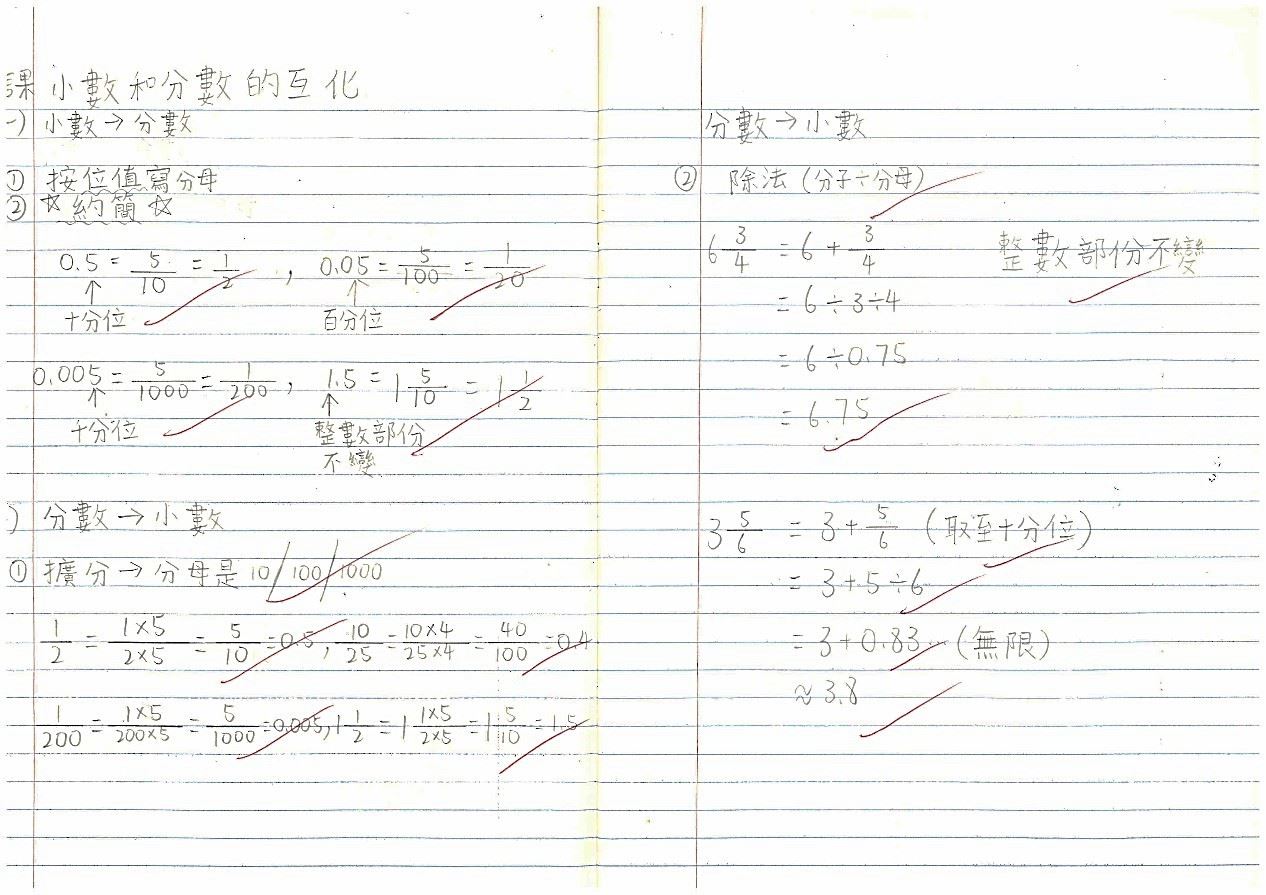 課 小數和分數的互化
一) 小數→分數
① 按位值寫分母
② ☆約簡☆
0.5 = 5/10 = 1/2 , 0.05 = 5/100 = 1/20
↑ ↑
十分位 百分位
0.005 = 5/1000 = 1/200 , 1.5 = 1 5/10 = 1 1/2
↑ ↑
千分位 整數部份
不變
) 分數→小數
① 擴分→分母是 10/100/1000
1/2 = 1×5/2×5 = 5/10 = 0.5 , 10/25 = 10×4/25×4 = 40/100 = 0.4
1/200 = 1×5/200×5 = 5/1000 = 0.005 , 1 1/2 = 1 1×5/2×5 = 1 5/10 = 1.5
分數→小數
② 除法 (分子÷分母)
6 3/4 = 6 + 3/4 整數部份不變
= 6÷3÷4
= 6÷0.75
= 6.75
3 5/6 = 3 + 5/6 (取至十分位)
= 3+5÷6
= 3+0.83... (無限)
≈ 3.8